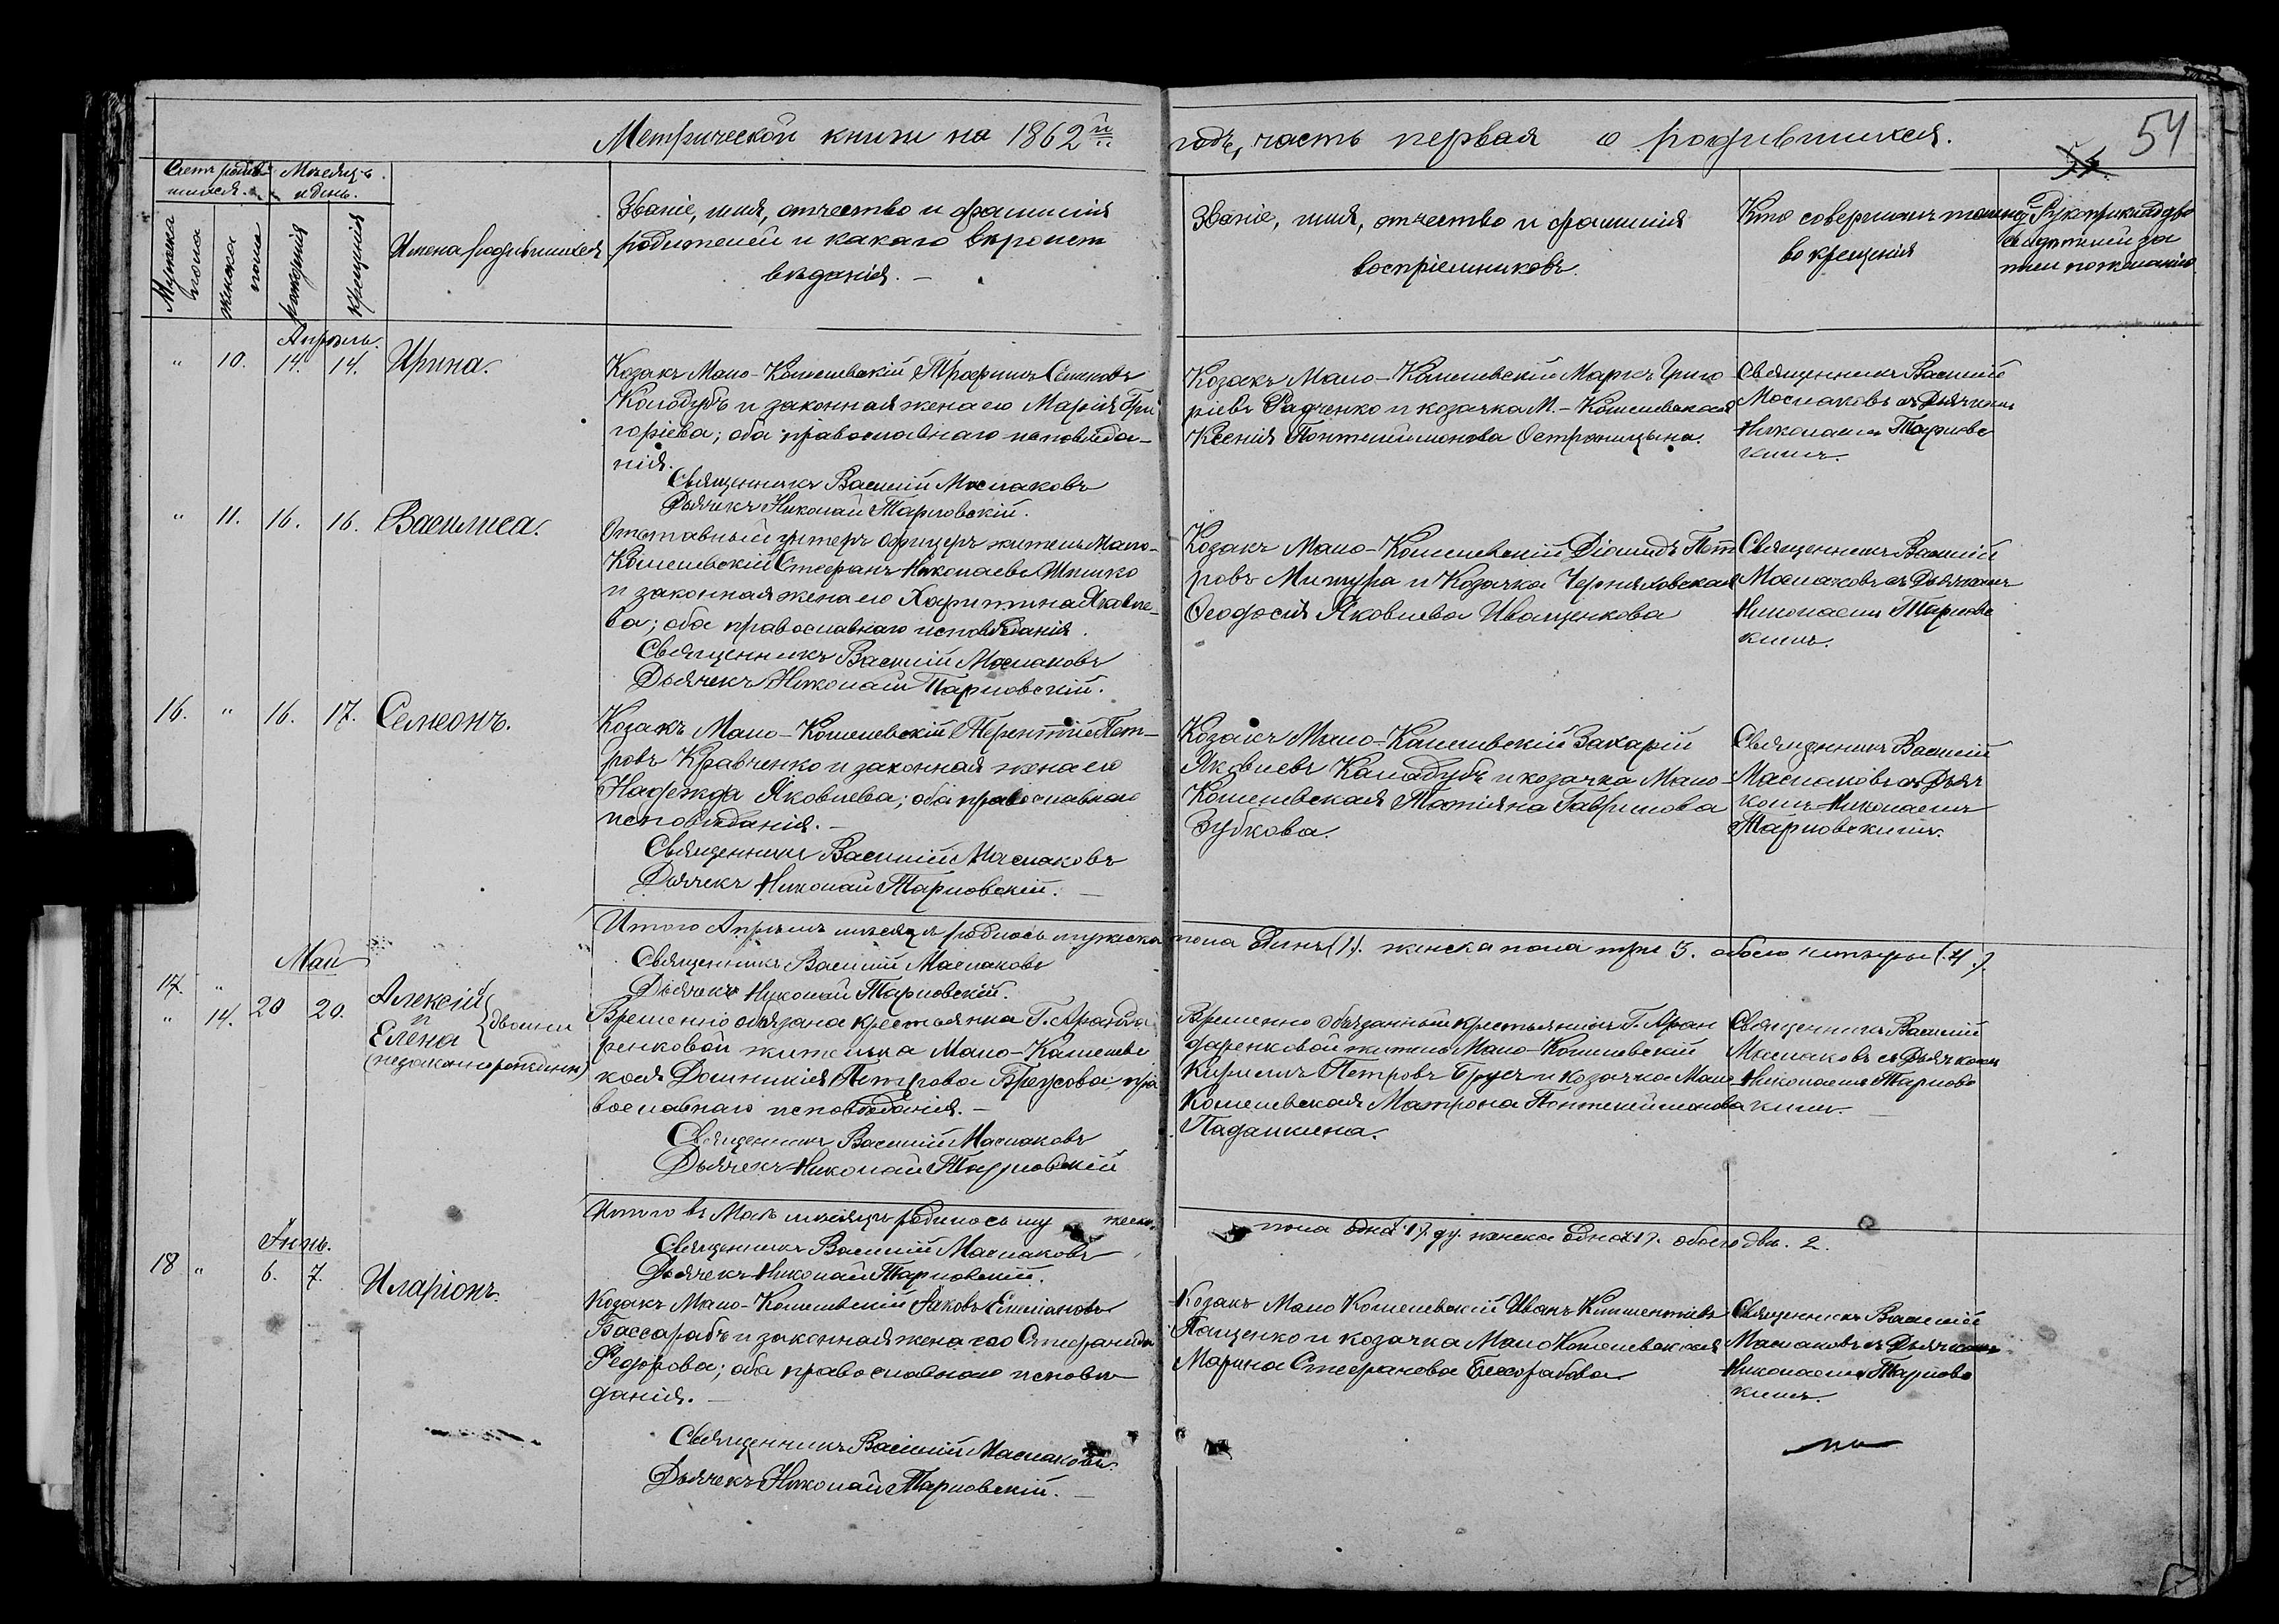 Метрической книги на 1862й годъ, часть первая о родившихся.
54
Счетъ родив-
шихся.
Мужеска пола
женска пола
Месяцъ
и день.
рожденія
крещенія
Имена родившихся
Званіе, имя, отчество и фамилія
родителей и какаго вѣроиспо
вѣданія.
Званіе, имя, отчество и фамилія
воспріемниковъ.
Кто совершилъ таинс
во крещенія
Рукоприкладство
свидѣтелей за
писи по желанію
Апрѣль.
" 10. 14. 14. Ирина.
Козакъ Мало-Кошелевскій Трофимъ Семеновъ
Колодубъ и законная жена его Марія Гри
горіева; оба православнаго исповѣда-
нія.
Священникъ Василій Маслаковъ
Дьячекъ Николай Тарловскій.
Козакъ Мало-Кошелевскій Маркъ Григо
ріевъ Радченко и козачка М.-Кошелевская
Ксенія Понтелимонова Остроницына.
Священникъ Василій
Маслаковъ съ Дьячкомъ
Николаемъ Тарловс
кимъ.
" 11. 16. 16. Василиса.
Отставный унтеръ офицеръ житель Мало-
Кошелевскій Стефанъ Николаевъ Шпилко
и законная жена его Харитина Яковле-
ва; оба православнаго исповѣданія.
Священникъ Василій Маслаковъ
Дьячекъ Николай Тарловскій.
Козакъ Мало-Кошелевскій Діомидъ Пет
ровъ Мишура и Козачка Черняховская
Феодосія Яковлева Иващенкова
Священникъ Василій
Маслаковъ съ Дьячкомъ
Николаемъ Тарловс
кимъ.
16. " 16. 17. Симеонъ.
Козакъ Мало-Кошелевскій Терентій Пет-
ровъ Кравченко и законная жена его
Надежда Яковлева; оба православнаго
исповѣданія.
Священникъ Василій Маслаковъ
Дьячекъ Николай Тарловскій.
Козакъ Мало-Кошелевскій Захарій
Яковлевъ Каладубъ и козачка Мало-
Кошелевская Татіяна Гаврилова
Зубкова.
Священникъ Василій
Маслаковъ съ Дьяч
комъ Николаемъ
Тарловскимъ.
Итого Апрѣлѣ месяцѣ родилось мужеска пола Одинъ (1). женска пола три 3. обоего четыре (4.).
Священникъ Василій Маслаковъ
Дьячекъ Николай Тарловскій.
Май
17. "
" 14. 20 20. Алексій
и
Елена
двойни
(незаконорожденн)
Временно обязана крестьянка Г. Аранда
ренковой жителька Мало-Кошелевс
кая Домникія Петрова Брусова пра
вославнаго исповѣданія.
Священникъ Василій Маслаковъ
Дьячекъ Николай Тарловскій
Временно обязанный крестьянинъ Г. Аран
даренковой житель Мало-Кошелевскій
Кирилъ Петровъ Брусъ и козачка Мало
Кошелевская Матрона Понтелимонова
Падалкина.
Священникъ Василій
Маслаковъ съ Дьячкомъ
Николаемъ Тарловс
кимъ.
Итого въ Маѣ месяцѣ родилось му жеск. пола одна 1). ду. женска Одна 1). обоего двѣ. 2.
Священникъ Василій Маслаковъ
Дьячекъ Николай Тарловскій.
Іюнь.
18 " 6. 7. Иларіонъ.
Козакъ Мало-Кошелевскій Яковъ Емеліановъ
Бассарабъ и законная жена его Агафанида
Федорова; оба православнаго исповѣ
данія.
Священникъ Василій Маслаковъ
Дьячекъ Николай Тарловскій.
Козакъ Мало Кошелевскій Иванъ Климентіевъ
Пащенко и козачка Мало Кошелевская
Марина Стефанова Бессарабова
Священникъ Василій
Маслаковъ съ Дьячкомъ
Николаемъ Тарловс
кимъ.